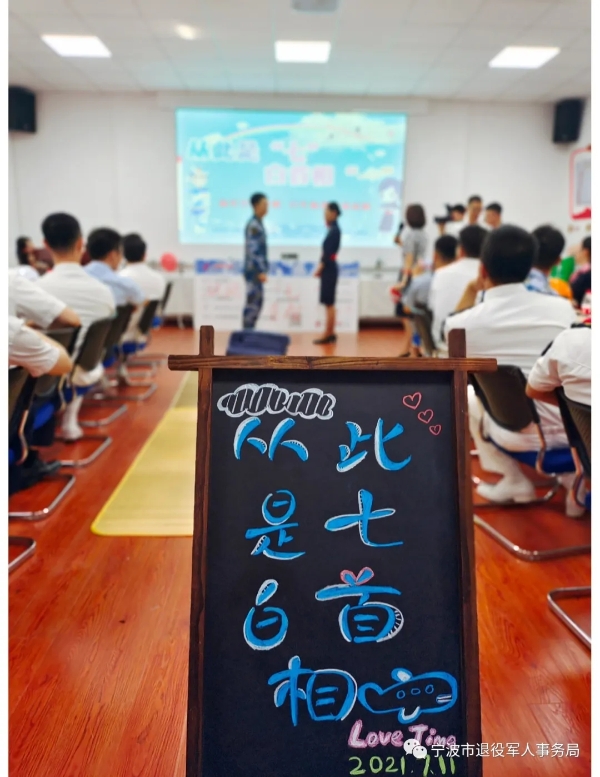 从此
是七
白首
相
Love Time
2021.7.11
宁波市退役军人事务局